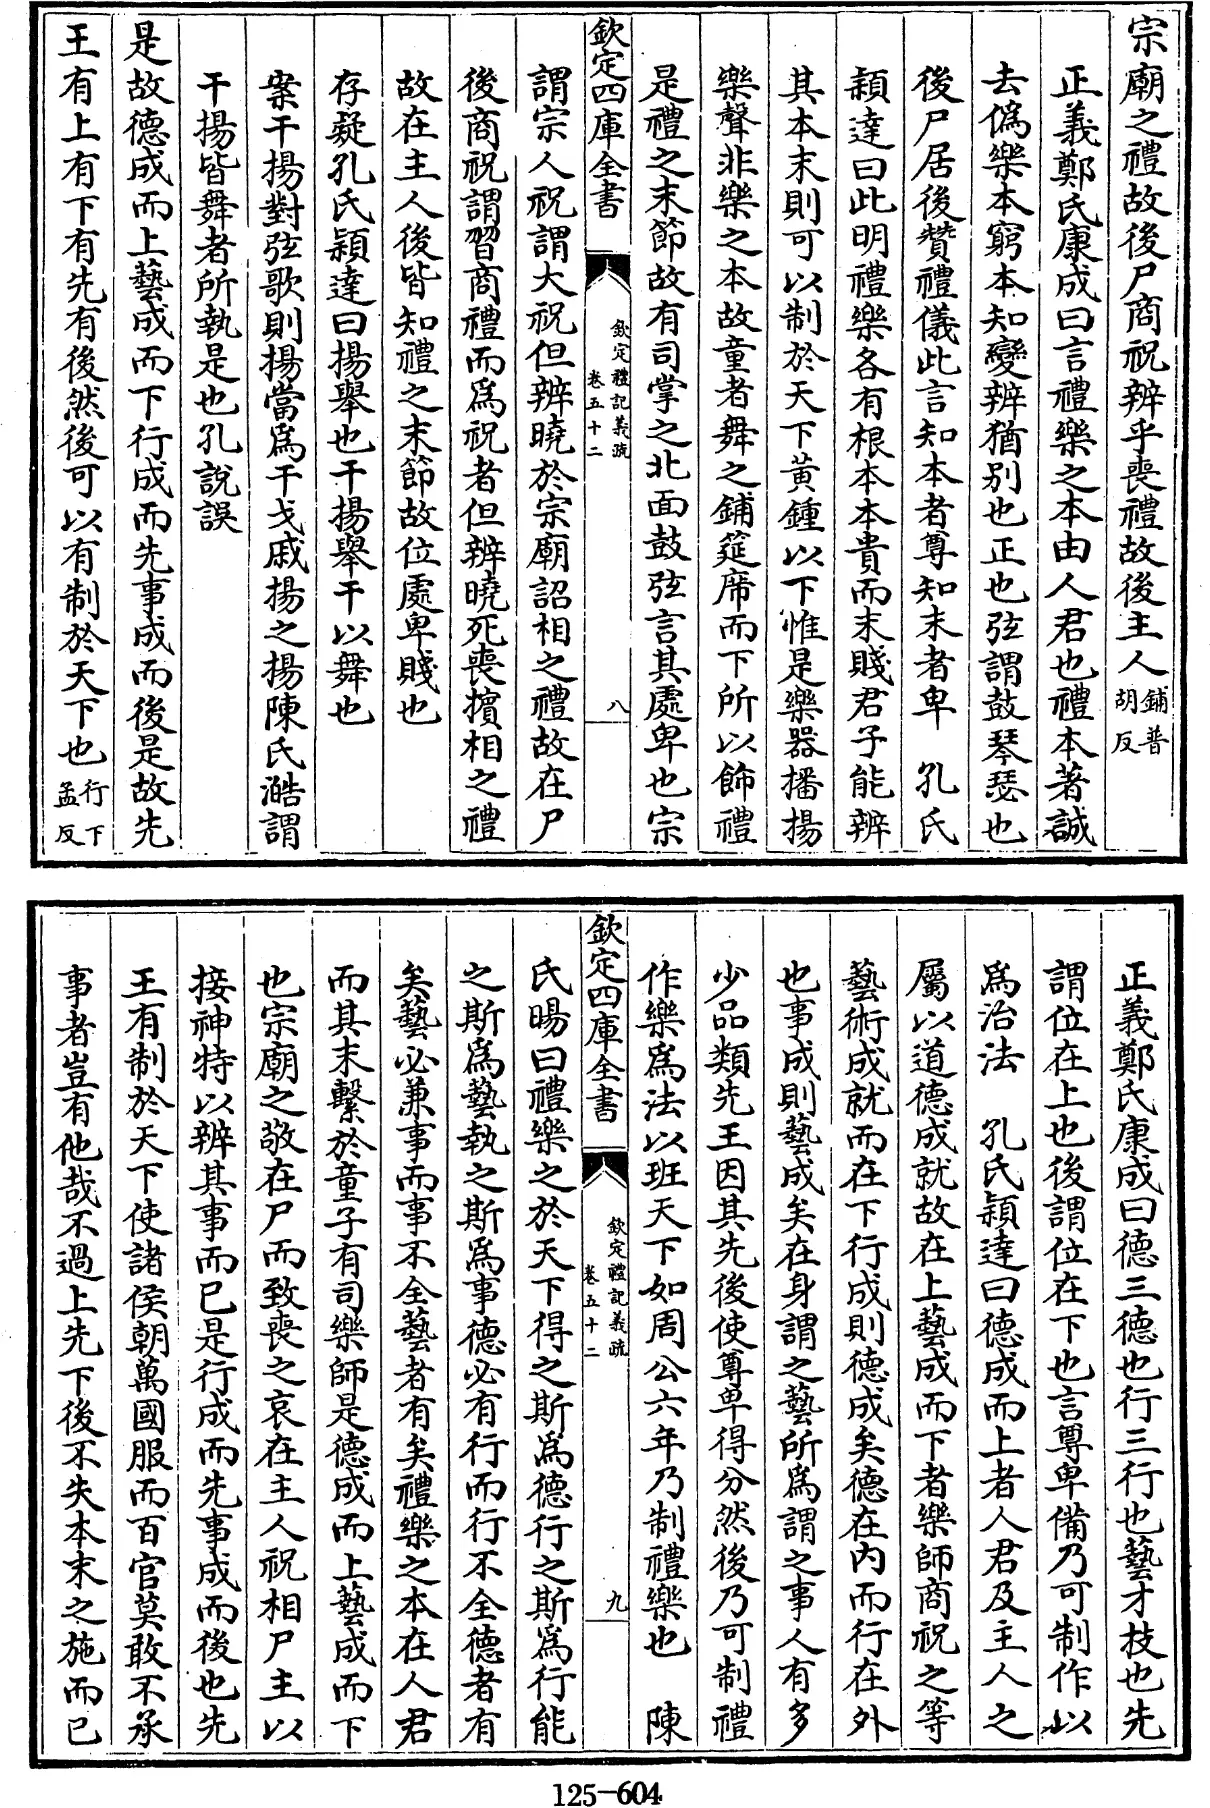 宗廟之禮故後尸商祝辨乎喪禮故後主人鋪普胡反
正義鄭氏康成曰言禮樂之本由人君也禮本著誠
去偽樂本窮本知變辨猶别也正也弦謂鼓琴瑟也
後尸居後贊禮儀此言知本者尊知末者卑　孔氏
穎達曰此明禮樂各有根本本貴而末賤君子能辨
其本末則可以制於天下黄鍾以下惟是樂器播揚
樂聲非樂之本故童者舞之鋪筵席而下所以飾禮
是禮之末節故有司掌之北面鼓弦言其處卑也宗
欽定四庫全書
欽定禮記義疏
卷五十二
八
謂宗人祝謂大祝但辨曉於宗廟詔相之禮故在尸
後商祝謂習商禮而為祝者但辨曉死喪擯相之禮
故在主人後皆知禮之末節故位處卑賤也
存疑孔氏穎達曰揚舉也干揚舉干以舞也
案干揚對弦歌則揚當為干戈戚揚之揚陳氏澔謂
干揚皆舞者所執是也孔說誤
是故德成而上藝成而下行成而先事成而後是故先
王有上有下有先有後然後可以有制於天下也行下孟反
正義鄭氏康成曰德三德也行三行也藝才技也先
謂位在上也後謂位在下也言尊卑備乃可制作以
為治法　孔氏穎達曰德成而上者人君及主人之
屬以道德成就故在上藝成而下者樂師商祝之等
藝術成就而在下行成則德成矣德在内而行在外
也事成則藝成矣在身謂之藝所為謂之事人有多
少品類先王因其先後使尊卑得分然後乃可制禮
作樂為法以班天下如周公六年乃制禮樂也　陳
欽定四庫全書
欽定禮記義疏
卷五十二
九
氏暘曰禮樂之於天下得之斯為德行之斯為行能
之斯為藝執之斯為事德必有行而行不全德者有
矣藝必兼事而事不全藝者有矣禮樂之本在人君
而其末繫於童子有司樂師是德成而上藝成而下
也宗廟之敬在尸而致喪之哀在主人祝相尸主以
接神特以辨其事而已是行成而先事成而後也先
王有制於天下使諸侯朝萬國服而百官莫敢不承
事者豈有他哉不過上先下後不失本末之施而已
125-604